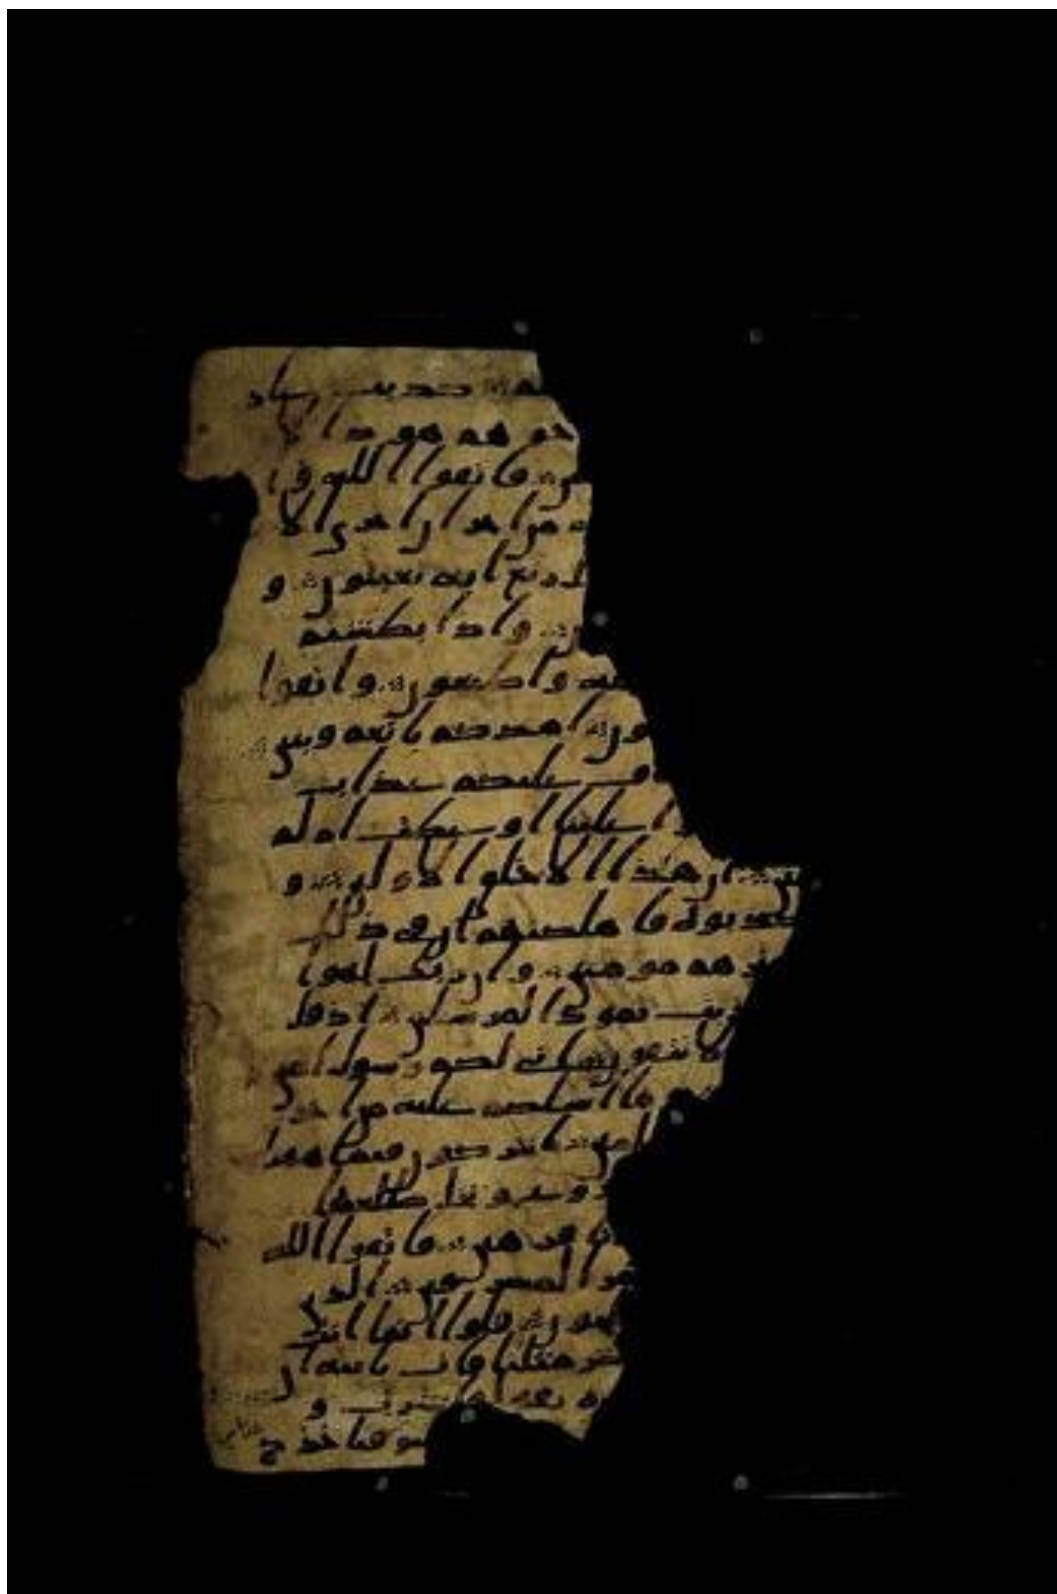 ين كذبت عاد
خوهم هود الا
ين فاتقوا الله وا
ه من اجر ان اجري الا
ريع ايه تعبثون و
ن واذا بطشتم
لله واطيعون واتقوا
مون امدكم بانعم وبنين
اف عليكم عذاب
ا علينا اوعظت ام لم
ين ان هذا الا خلق الاولين و
فكذبوه فاهلكنهم ان في ذلك
ثرهم مومنين وان ربك لهو ا
ذبت ثمود المرسلين اذ قل
لا تتقون اني لكم رسول امين
ما اسلكم عليه من اجر
لمين اتتركون في ما ههنا
وزروع ونخل طلعها
تا فرهين فاتقوا الله
مر المسرفين الذين
حون قالوا انما انت
شر مثلنا فات بايه ان
ه ناقه لها شرب و
سو فياخذ كم